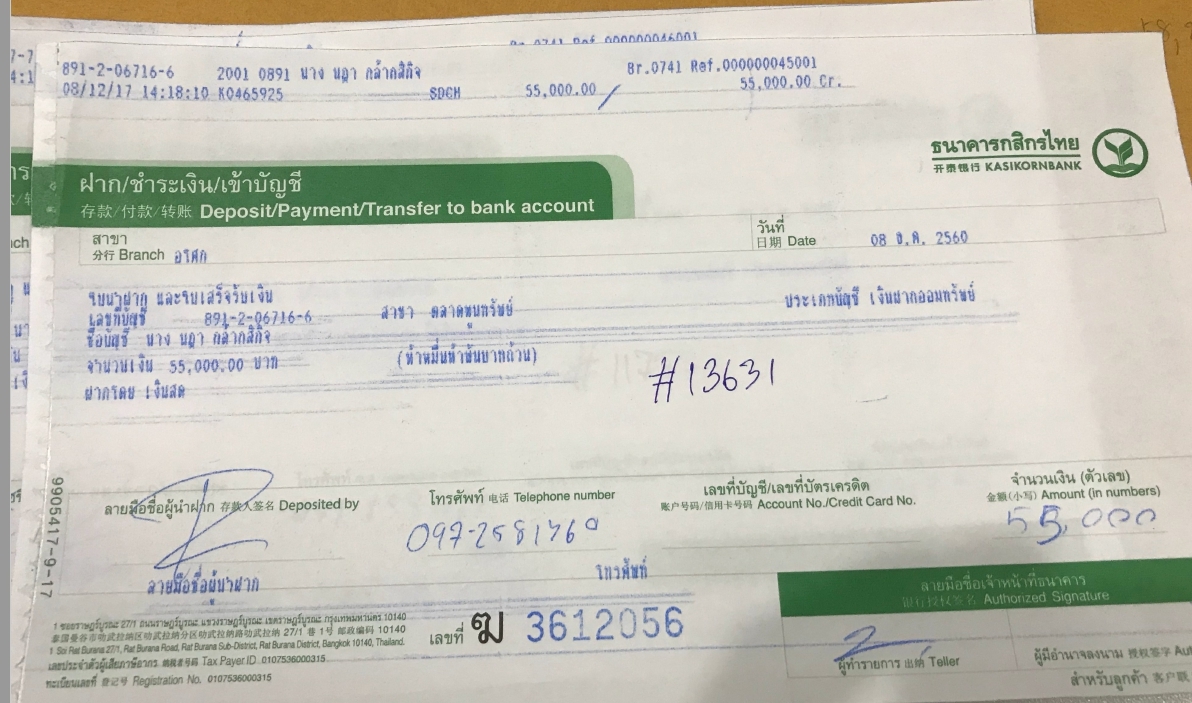 Br.0741 Ref.000000046001
891-2-06716-6 2001 0891 นาง นฎา กล้ากสิกิจ Br.0741 Ref.000000045001
08/12/17 14:18:10 K0465925 SDCH 55,000.00 55,000.00 Cr.
ธนาคารกสิกรไทย
开泰银行 KASIKORNBANK
ฝาก/ชำระเงิน/เข้าบัญชี
存款/付款/转账 Deposit/Payment/Transfer to bank account
สาขา
分行 Branch อโศก
วันที่
日期 Date 08 ธ.ค. 2560
ใบนำฝาก และใบเสร็จรับเงิน
เลขที่บัญชี 891-2-06716-6 สาขา ตลาดพูนทรัพย์ ประเภทบัญชี เงินฝากออมทรัพย์
ชื่อบัญชี นาง นฎา กล้ากสิกิจ
จำนวนเงิน 55,000.00 บาท (ห้าหมื่นห้าพันบาทถ้วน)
ฝากโดย เงินสด
#13631
ลายมือชื่อผู้นำฝาก 存款人签名 Deposited by
โทรศัพท์ 电话 Telephone number
097-2581760
เลขที่บัญชี/เลขที่บัตรเครดิต
账户号码/信用卡号码 Account No./Credit Card No.
จำนวนเงิน (ตัวเลข)
金额(小写) Amount (in numbers)
55,000
ลายมือชื่อผู้นำฝาก โทรศัพท์
9905417-9-17
ลายมือชื่อเจ้าหน้าที่ธนาคาร
银行授权签名 Authorized Signature
1 ซอยราษฎร์บูรณะ 27/1 ถนนราษฎร์บูรณะ แขวงราษฎร์บูรณะ เขตราษฎร์บูรณะ กรุงเทพมหานคร 10140
泰国曼谷市叻武拉纳区叻武拉纳分区叻武拉纳路叻武拉纳 27/1 巷 1 号 邮政编码 10140
1 Soi Rat Burana 27/1, Rat Burana Road, Rat Burana Sub-District, Rat Burana District, Bangkok 10140, Thailand.
เลขประจำตัวผู้เสียภาษีอากร 纳税者号码 Tax Payer ID 0107536000315
ทะเบียนเลขที่ 登记号 Registration No. 0107536000315
เลขที่ ฆ 3612056
ผู้ทำรายการ 出纳 Teller
ผู้มีอำนาจลงนาม 授权签字
สำหรับลูกค้า 客户联